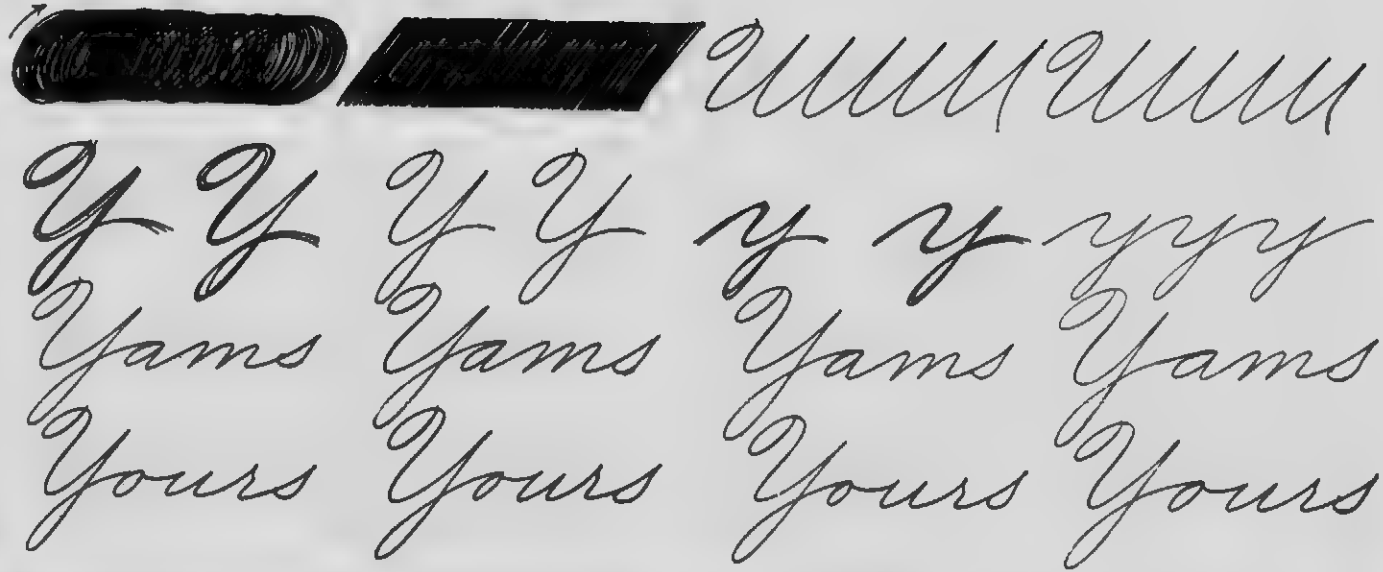 Y Y Y Y y y y y y
Yams Yams Yams Yams
Yours Yours Yours Yours